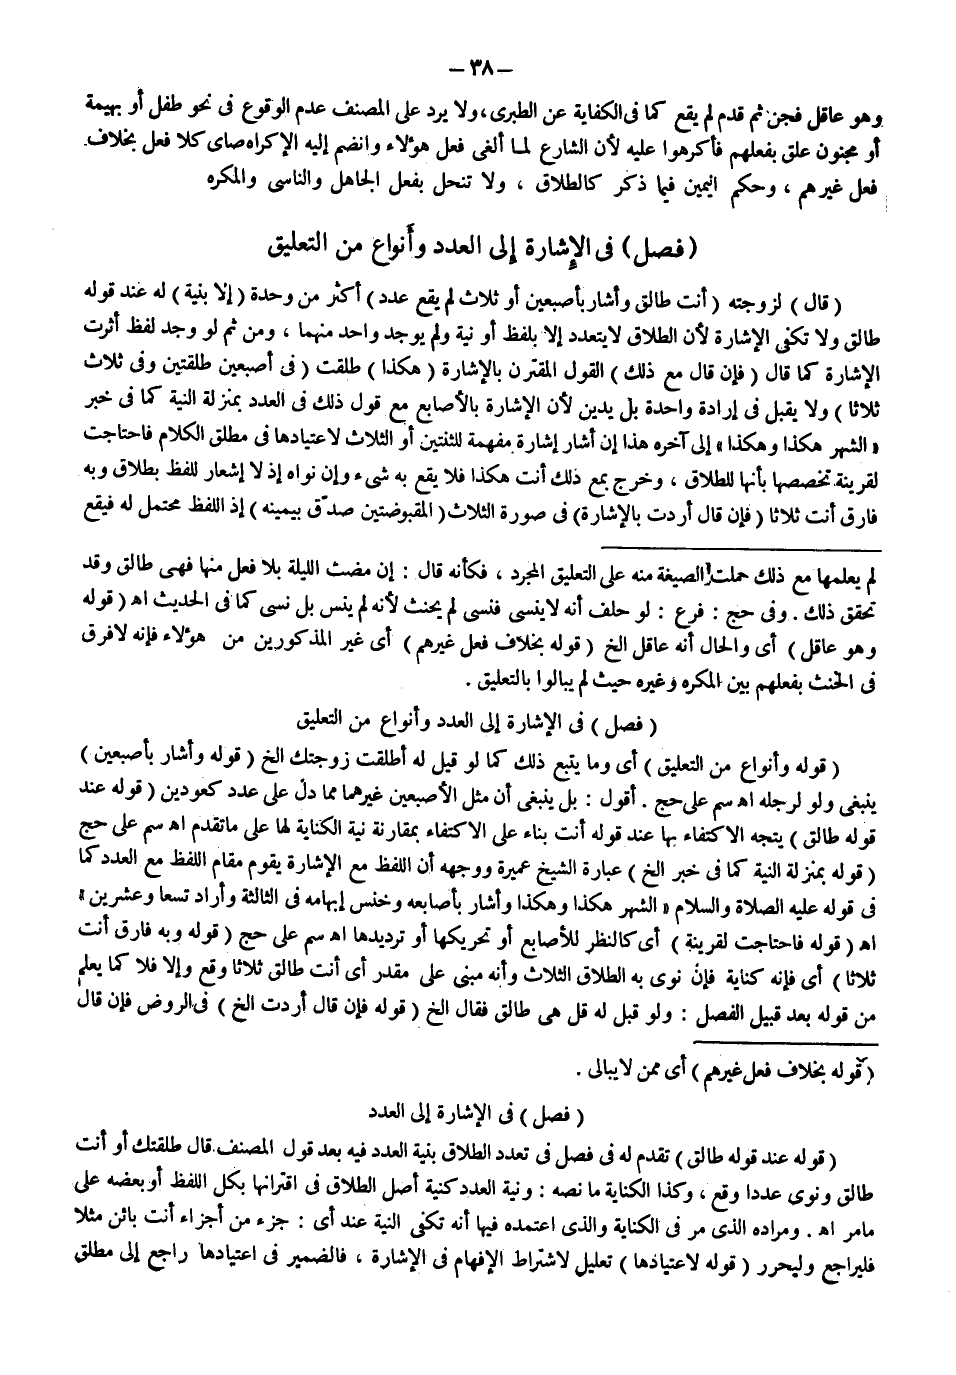 — ٣٨ —
وهو عاقل فجن ثم قدم لم يقع كما فى الكفاية عن الطبرى، ولا يرد على المصنف عدم الوقوع فى نحو طفل أو بهيمة
أو مجنون علق بفعلهم فأكرهوا عليه لأن الشارع لما ألغى فعل هؤلاء وانضم إليه الإكراه صاى كلا فعل بخلاف
فعل غيرهم ، وحكم اليمين فيما ذكر كالطلاق ، ولا تنحل بفعل الجاهل والناسى والمكره
( فصل ) فى الإشارة إلى العدد وأنواع من التعليق
( قال ) لزوجته ( أنت طالق وأشار بأصبعين أو ثلاث لم يقع عدد ) أكثر من وحدة ( إلا بنية ) له عند قوله
طالق ولا تكفى الإشارة لأن الطلاق لايتعدد إلا بلفظ أو نية ولم يوجد واحد منهما ، ومن ثم لو وجد لفظ أثرت
الإشارة كما قال ( فإن قال مع ذلك ) القول المقترن بالإشارة ( هكذا ) طلقت ( فى أصبعين طلقتين وفى ثلاث
ثلاثا ) ولا يقبل فى إرادة واحدة بل يدين لأن الإشارة بالأصابع مع قول ذلك فى العدد بمنزلة النية كما فى خبر
« الشهر هكذا وهكذا » إلى آخره هذا إن أشار إشارة مفهمة للثنتين أو الثلاث لاعتيادها فى مطلق الكلام فاحتاجت
لقرينة تخصصها بأنها للطلاق ، وخرج بمع ذلك أنت هكذا فلا يقع به شىء وإن نواه إذ لا إشعار للفظ بطلاق وبه
فارق أنت ثلاثا ( فإن قال أردت بالإشارة) فى صورة الثلاث( المقبوضتين صدّق بيمينه ) إذ اللفظ محتمل له فيقع
لم يعلمها مع ذلك حملت الصيغة منه على التعليق المجرد ، فكأنه قال : إن مضت الليلة بلا فعل منها فهى طالق وقد
تحقق ذلك . وفى حج : فرع : لو حلف أنه لاينسى فنسى لم يحنث لأنه لم ينس بل نسى كما فى الحديث اه ( قوله
وهو عاقل ) أى والحال أنه عاقل الخ ( قوله بخلاف فعل غيرهم ) أى غير المذكورين من هؤلاء فإنه لافرق
فى الحنث بفعلهم بين المكره وغيره حيث لم يبالوا بالتعليق .
( فصل ) فى الإشارة إلى العدد وأنواع من التعليق
( قوله وأنواع من التعليق ) أى وما يتبع ذلك كما لو قيل له أطلقت زوجتك الخ ( قوله وأشار بأصبعين )
ينبغى ولو لرجله اه سم على حج . أقول : بل ينبغى أن مثل الأصبعين غيرهما مما دل على عدد كعودين ( قوله عند
قوله طالق ) يتجه الاكتفاء بها عند قوله أنت بناء على الاكتفاء بمقارنة نية الكناية لها على ماتقدم اه سم على حج
( قوله بمنزلة النية كما فى خبر الخ ) عبارة الشيخ عميرة ووجهه أن اللفظ مع الإشارة يقوم مقام اللفظ مع العدد كما
فى قوله عليه الصلاة والسلام « الشهر هكذا وهكذا وأشار بأصابعه وخنس إبهامه فى الثالثة وأراد تسعا وعشرين »
اه ( قوله فاحتاجت لقرينة ) أى كالنظر للأصابع أو تحريكها أو ترديدها اه سم على حج ( قوله وبه فارق أنت
ثلاثا ) أى فإنه كناية فإن نوى به الطلاق الثلاث وأنه مبنى على مقدر أى أنت طالق ثلاثا وقع وإلا فلا كما يعلم
من قوله بعد قبيل الفصل : ولو قبل له قل هى طالق فقال الخ ( قوله فإن قال أردت الخ ) فى الروض فإن قال
( قوله بخلاف فعل غيرهم ) أى ممن لايبالى .
( فصل ) فى الإشارة إلى العدد
( قوله عند قوله طالق ) تقدم له فى فصل فى تعدد الطلاق بنية العدد فيه بعد قول المصنف قال طلقتك أو أنت
طالق ونوى عددا وقع ، وكذا الكناية ما نصه : ونية العدد كنية أصل الطلاق فى اقترانها بكل اللفظ أو بعضه على
مامر اه . ومراده الذى مر فى الكناية والذى اعتمده فيها أنه تكفى النية عند أى : جزء من أجزاء أنت بائن مثلا
فليراجع وليحرر ( قوله لاعتيادها ) تعليل لاشتراط الإفهام فى الإشارة ، فالضمير فى اعتيادها راجع إلى مطلق